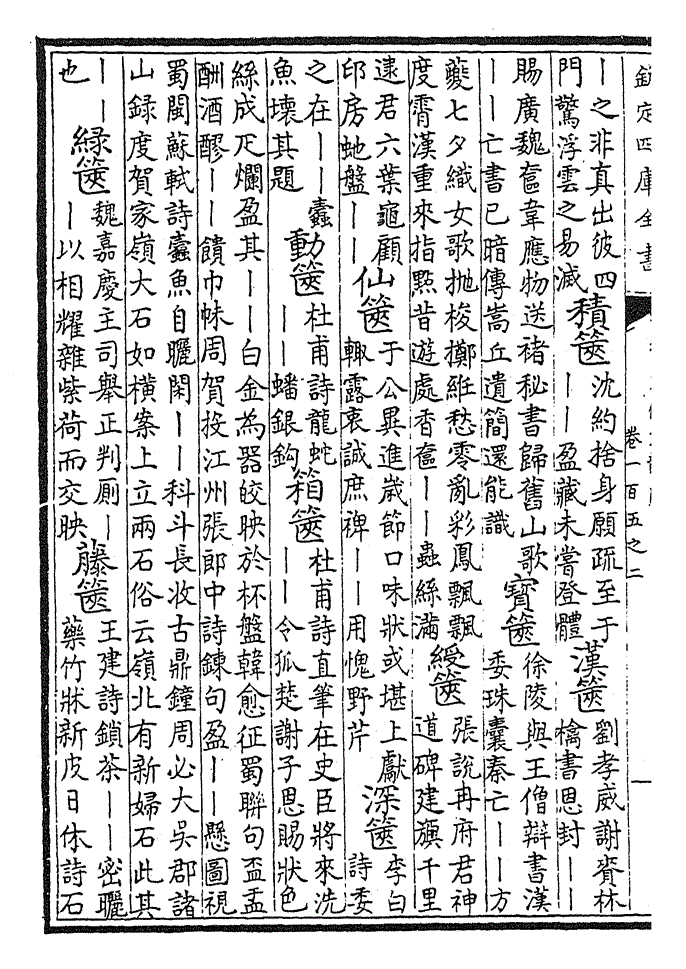 欽定四庫全書
卷一百五之二
丨之非真出彼四
門驚浮雲之易滅
積篋
沈約捨身願疏至于
丨丨盈藏未嘗登體
漢篋
劉孝威謝賚林
檎書恩封丨丨
賜廣魏奩韋應物送褚秘書歸舊山歌
丨丨亡書已暗傳嵩丘遺簡還能識
寶篋
徐陵與王僧辯書漢
委珠囊秦亡丨丨方
夔七夕織女歌拋梭擲絍愁零亂彩鳳飄飄
度霄漢重來指點昔遊處香奩丨丨蟲絲滿
綬篋
張說冉府君神
道碑建旟千里
逮君六葉龜顧
印房虵盤丨丨
仙篋
于公異進歲節口味狀或堪上獻
輙露衷誠庶裨丨丨用愧野芹
深篋
李白
詩委
之在丨丨蠹
魚壞其題
動篋
杜甫詩龍蛇
丨丨蟠銀鈎
箱篋
杜甫詩直筆在史臣將來洗
丨丨令狐楚謝子恩賜狀色
絲成疋爛盈其丨丨白金為器皎映於杯盤韓愈征蜀聯句盃盂
酬酒醪丨丨饋巾帓周賀投江州張郎中詩鍊句盈丨丨懸圖視
蜀閩蘇軾詩蠹魚自曬閑丨丨科斗長收古鼎鐘周必大吳郡諸
山録度賀家嶺大石如横案上立兩石俗云嶺北有新婦石此其
丨丨
也
緑篋
魏嘉慶主司舉正判厠丨
丨以相耀雜紫荷而交映
藤篋
王建詩鎖茶丨丨密曬
藥竹牀新皮日休詩石